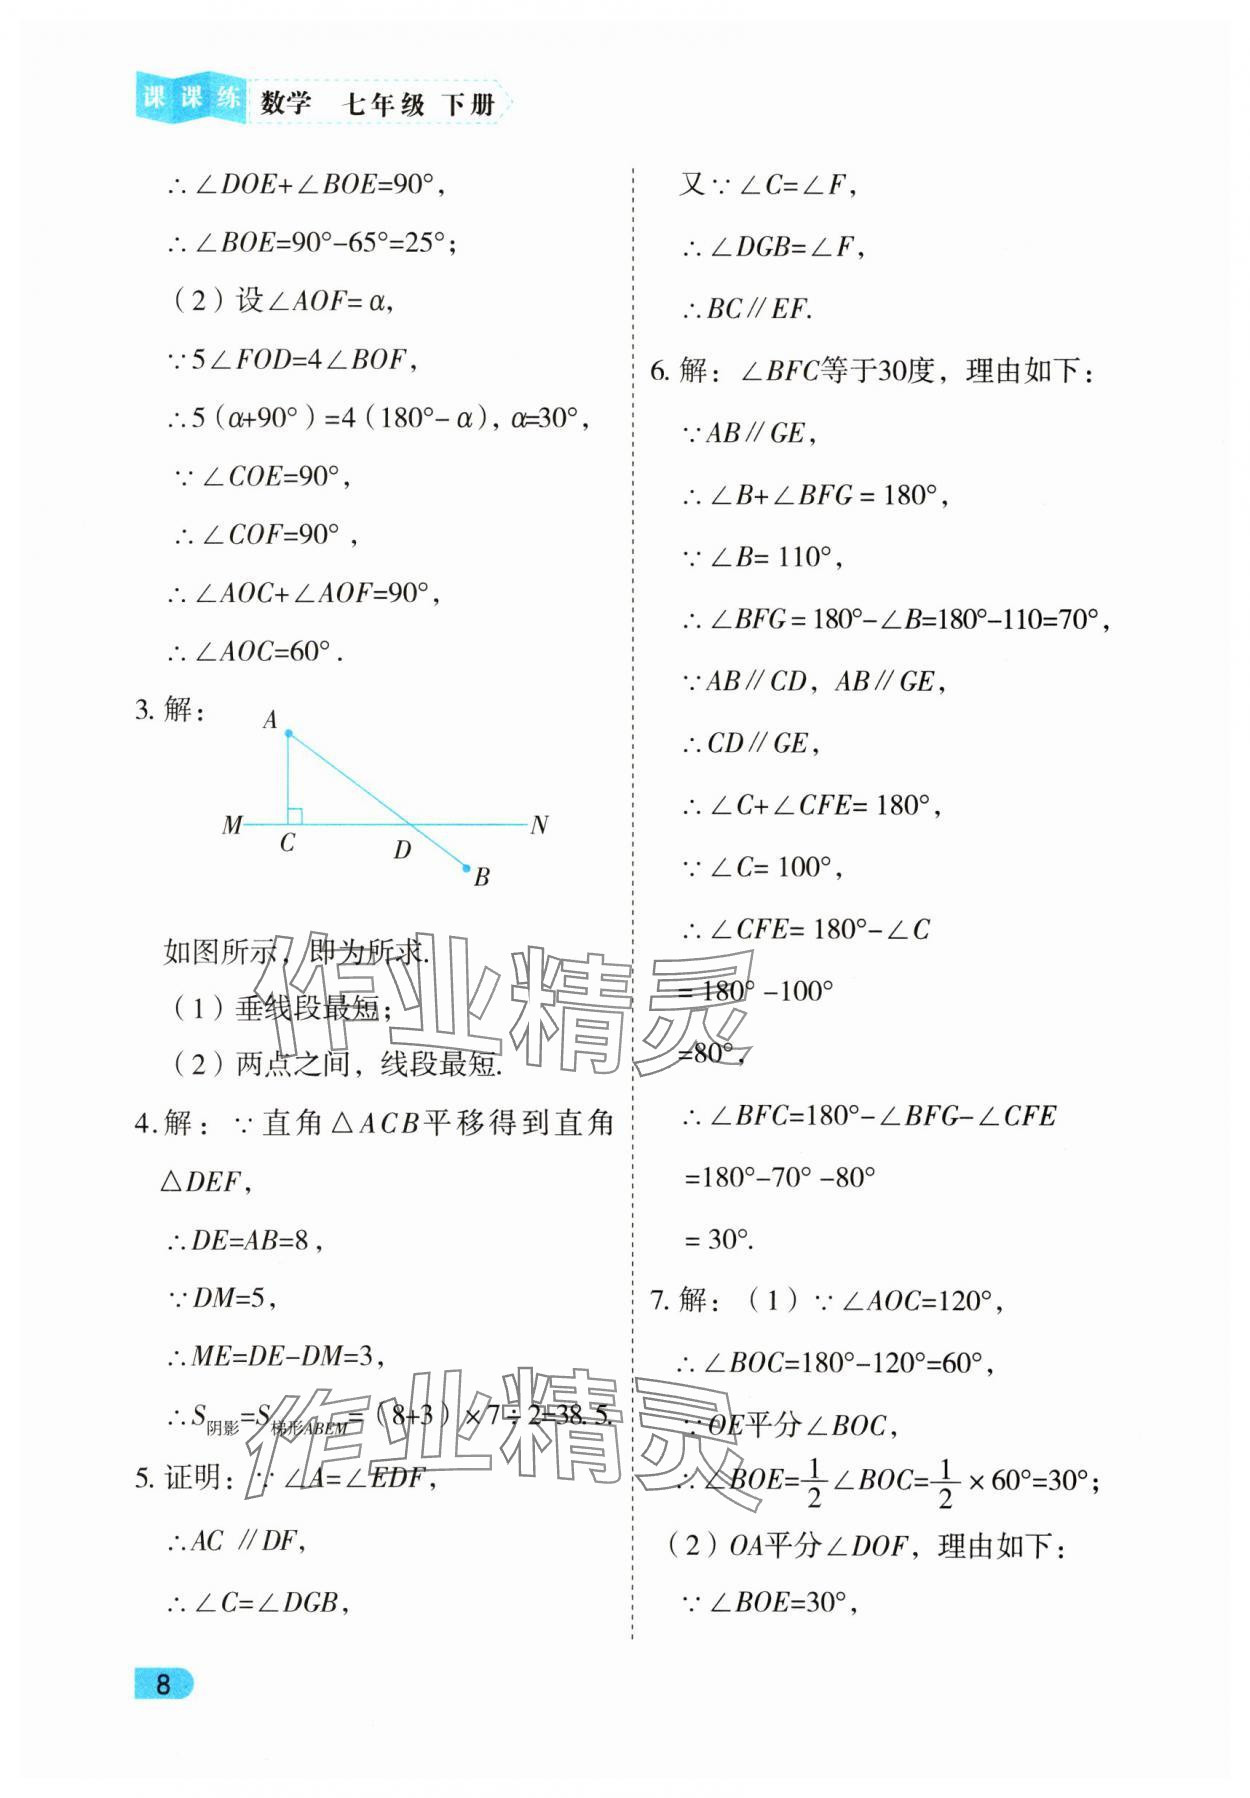 课课练 数学 七年级 下册
∴∠DOE+∠BOE=90°,
∴∠BOE=90°-65°=25°;
(2)设∠AOF=α,
∵5∠FOD=4∠BOF,
∴5(α+90°)=4(180°-α), α=30°,
∵∠COE=90°,
∴∠COF=90°,
∴∠AOC+∠AOF=90°,
∴∠AOC=60°.
3. 解:
A
M
C
D
N
B
如图所示,即为所求.
(1)垂线段最短;
(2)两点之间,线段最短.
4. 解:∵直角△ACB平移得到直角
△DEF,
∴DE=AB=8,
∵DM=5,
∴ME=DE-DM=3,
∴S阴影=S梯形ABEM=(8+3)×7÷2=38.5.
5. 证明:∵∠A=∠EDF,
∴AC∥DF,
∴∠C=∠DGB,
又∵∠C=∠F,
∴∠DGB=∠F,
∴BC∥EF.
6. 解:∠BFC等于30度,理由如下:
∵AB∥GE,
∴∠B+∠BFG=180°,
∵∠B=110°,
∴∠BFG=180°-∠B=180°-110=70°,
∵AB∥CD, AB∥GE,
∴CD∥GE,
∴∠C+∠CFE=180°,
∵∠C=100°,
∴∠CFE=180°-∠C
=180°-100°
=80°,
∴∠BFC=180°-∠BFG-∠CFE
=180°-70°-80°
=30°.
7. 解:(1)∵∠AOC=120°,
∴∠BOC=180°-120°=60°,
∵OE平分∠BOC,
∴∠BOE=1/2∠BOC=1/2×60°=30°;
(2)OA平分∠DOF,理由如下:
∵∠BOE=30°,
8
作业精灵
作业精灵